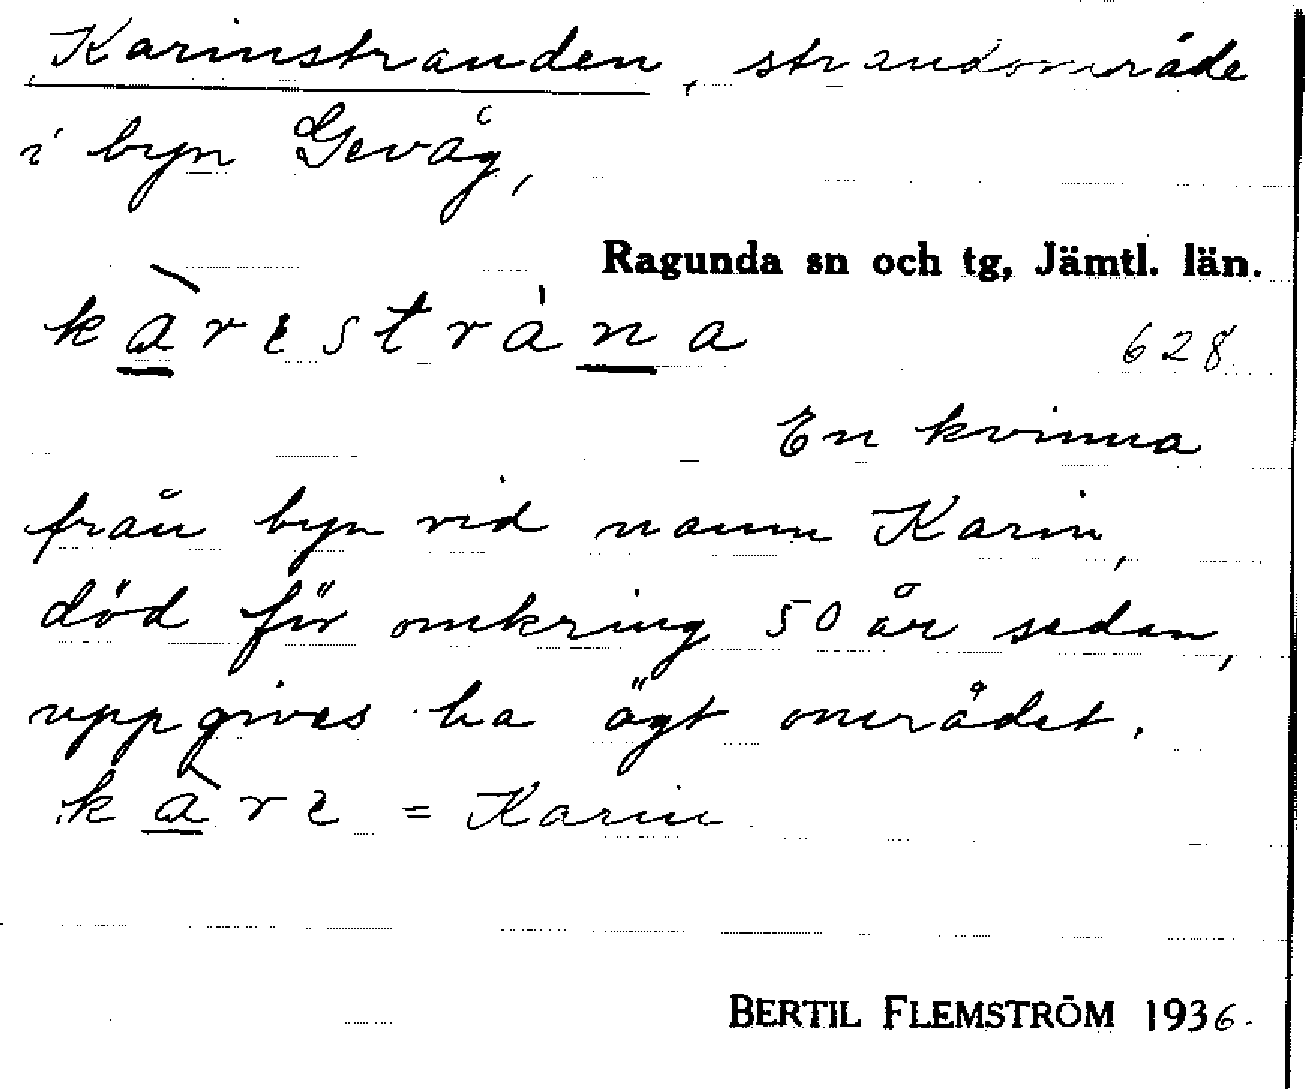 Karinstranden, strandområde
i byn Gevåg,
Ragunda sn och tg, Jämtl. län.
kàrɛstrána
628
En kvinna
från byn vid namn Karin,
död för omkring 50 år sedan,
uppgives ha ägt området.
kàrɛ = Karin
BERTIL FLEMSTRÖM 1936.